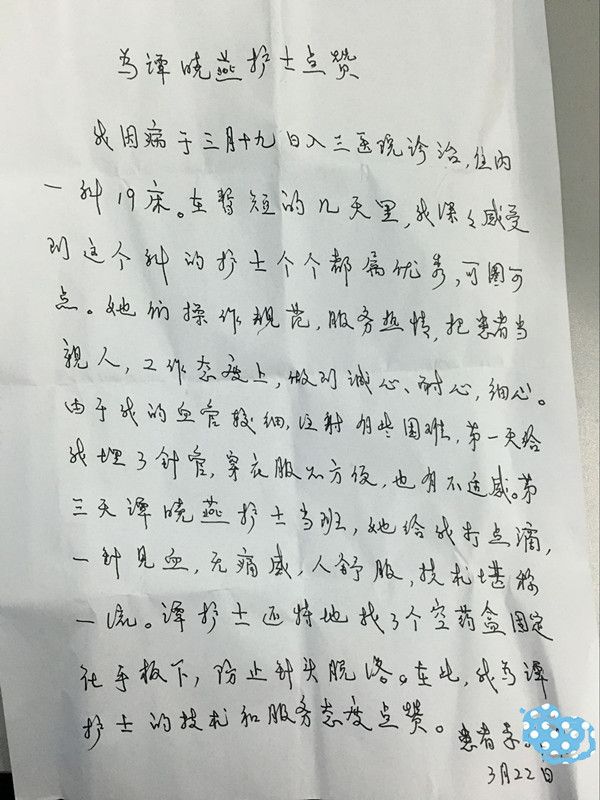 为谭晓燕护士点赞
我因病于三月十九日入三医院诊治,住内
一科19床。在暂短的几天里,我深々感受
到这个科的护士个个都属优秀,可圈可
点。她们操作规范,服务热情,把患者当
亲人,工作态度上,做到诚心、耐心,细心。
由于我的血管较细,注射有些困难,第一天给
我埋了针管,穿衣服不方便,也有不适感。第
三天谭晓燕护士当班,她给我打点滴,
一针见血,无痛感,人舒服,技术堪称
一流。谭护士还特地找了个空药盒固定
在手板下,防止针头脱落。在此,我为谭
护士的技术和服务态度点赞。患者李
3月22日